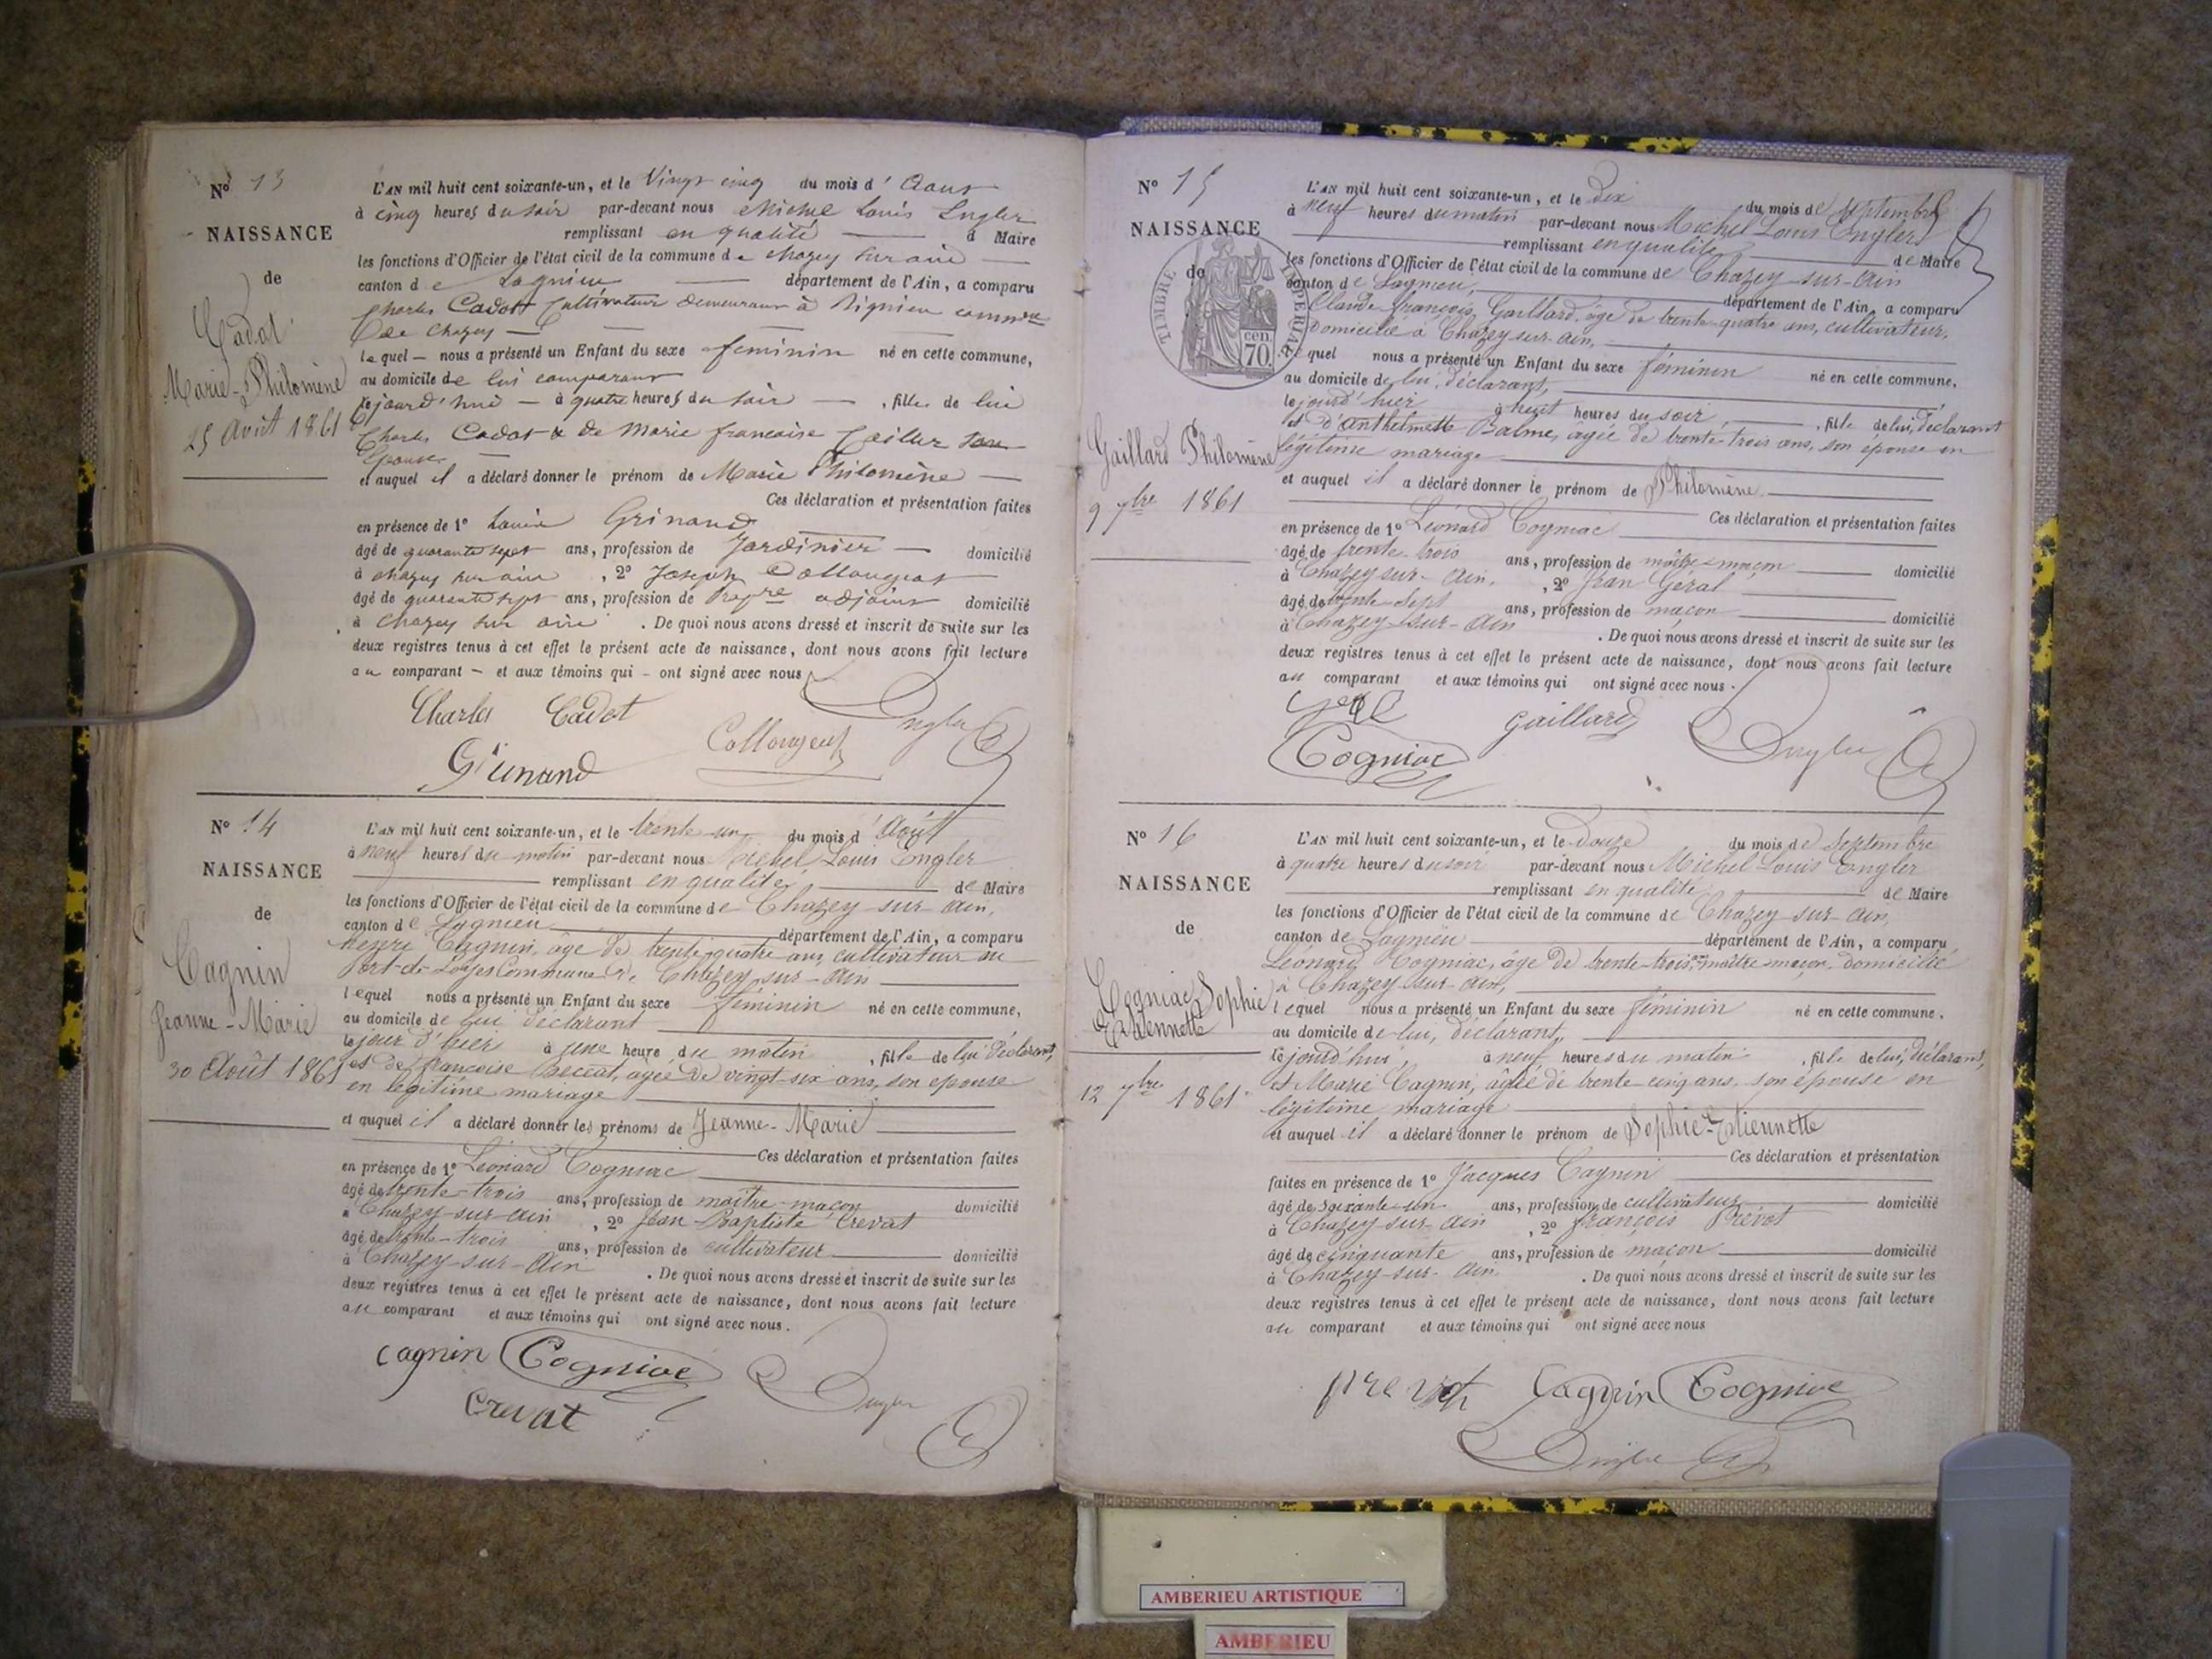 N° 13
NAISSANCE
de
Cadot
Marie-Philomène
25 Août 1861
L'AN mil huit cent soixante-un, et le Vingt cinq du mois d'Aout
à cinq heures du soir par-devant nous Michel Louis Engler
remplissant en qualité d Maire
les fonctions d'Officier de l'état civil de la commune de chazey sur ain
canton de Lagnieu département de l'Ain, a comparu
Charles Cadot Cultivateur demeurant à Rignieu commune
de Chazey
lequel nous a présenté un Enfant du sexe feminin né en cette commune,
au domicile de lui comparant
cejourd'hui à quatre heures du soir, fille de lui
Charles Cadot & de Marie francoise son
Epouse
et auquel il a déclaré donner le prénom de Marie Philomène
Ces déclaration et présentation faites
en présence de 1° Louis Grinand
âgé de quarante sept ans, profession de Jardinier domicilié
à chazey sur ain, 2° Joseph Collongeat
âgé de quarante sept ans, profession de Propre adjoint domicilié
à Chazey sur ain. De quoi nous avons dressé et inscrit de suite sur les
deux registres tenus à cet effet le présent acte de naissance, dont nous avons fait lecture
au comparant et aux témoins qui ont signé avec nous
Charles Cadot Engler
Grinand Collongeat
N° 14
NAISSANCE
de
Cagnin
Jeanne-Marie
30 Août 1861
L'AN mil huit cent soixante-un, et le trente-un du mois d'Août
à neuf heures du matin par-devant nous Michel Louis Engler
remplissant en qualité de Maire
les fonctions d'Officier de l'état civil de la commune de Chazey-sur-Ain,
canton de Lagnieu département de l'Ain, a comparu
Henri Cagnin, âgé de trente-quatre ans, cultivateur au
Port-de-Loyes Commune de Chazey-sur-Ain
lequel nous a présenté un Enfant du sexe féminin né en cette commune,
au domicile de lui déclarant
le jour d'hier à une heure du matin, fille de lui déclarant,
et de francoise âgée de vingt-six ans, son epouse
en légitime mariage
et auquel il a déclaré donner les prénoms de Jeanne-Marie
Ces déclaration et présentation faites
en présence de 1° Léonard Cogniac
âgé de trente-trois ans, profession de maître-maçon domicilié
à Chazey-sur-Ain, 2° Jean-Baptiste Crevat
âgé de trente-trois ans, profession de cultivateur domicilié
à Chazey-sur-Ain. De quoi nous avons dressé et inscrit de suite sur les
deux registres tenus à cet effet le présent acte de naissance, dont nous avons fait lecture
au comparant et aux témoins qui ont signé avec nous.
cagnin Cogniac Engler
Crevat
N° 15
NAISSANCE
de
TIMBRE IMPERIAL
70 cen.
Gaillard Philomène
9 7bre 1861
L'AN mil huit cent soixante-un, et le Dix du mois de Septembre
à neuf heures du matin par-devant nous Michel Louis Engler
remplissant en qualité de Maire
les fonctions d'Officier de l'état civil de la commune de Chazey-sur-Ain
canton de Lagnieu, département de l'Ain, a comparu
Claude françois Gaillard, âgé de trente-quatre ans, cultivateur,
domicilié à Chazey-sur-Ain,
lequel nous a présenté un Enfant du sexe féminin né en cette commune,
au domicile de lui, déclarant,
le jourd'hier à huit heures du soir, fille de lui, déclarant
et d'Anthelmette Balme, âgée de trente-trois ans, son épouse en
légitime mariage
et auquel il a déclaré donner le prénom de Philomène
Ces déclaration et présentation faites
en présence de 1° Léonard Cogniac
âgé de trente-trois ans, profession de maître-maçon domicilié
à Chazey-sur-Ain, 2° Jean Géral
âgé de trente-sept ans, profession de maçon domicilié
à Chazey-sur-Ain. De quoi nous avons dressé et inscrit de suite sur les
deux registres tenus à cet effet le présent acte de naissance, dont nous avons fait lecture
au comparant et aux témoins qui ont signé avec nous.
Gaillard Engler
Cogniac
N° 16
NAISSANCE
de
Cogniac Sophie
Etiennette
12 7bre 1861
L'AN mil huit cent soixante-un, et le Douze du mois de Septembre
à quatre heures du soir par-devant nous Michel Louis Engler
remplissant en qualité de Maire
les fonctions d'Officier de l'état civil de la commune de Chazey-sur-Ain,
canton de Lagnieu département de l'Ain, a comparu
Léonard Cogniac, âgé de trente-trois ans maître-maçon, domicilié
à Chazey-sur-Ain,
lequel nous a présenté un Enfant du sexe féminin né en cette commune,
au domicile de lui, déclarant,
cejourd'hui, à neuf heures du matin, fille de lui, déclarant,
et Marie Cagnin, âgée de trente-cinq ans, son épouse en
légitime mariage
et auquel il a déclaré donner le prénom de Sophie-Etiennette
Ces déclaration et présentation
faites en présence de 1° Jacques Cagnin
âgé de Soixante-un ans, profession de cultivateur domicilié
à Chazey-sur-Ain, 2° françois Prévot
âgé de cinquante ans, profession de maçon domicilié
à Chazey-sur-Ain. De quoi nous avons dressé et inscrit de suite sur les
deux registres tenus à cet effet le présent acte de naissance, dont nous avons fait lecture
au comparant et aux témoins qui ont signé avec nous
prevot Cagnin Cogniac
Engler
AMBERIEU ARTISTIQUE
AMBERIEU